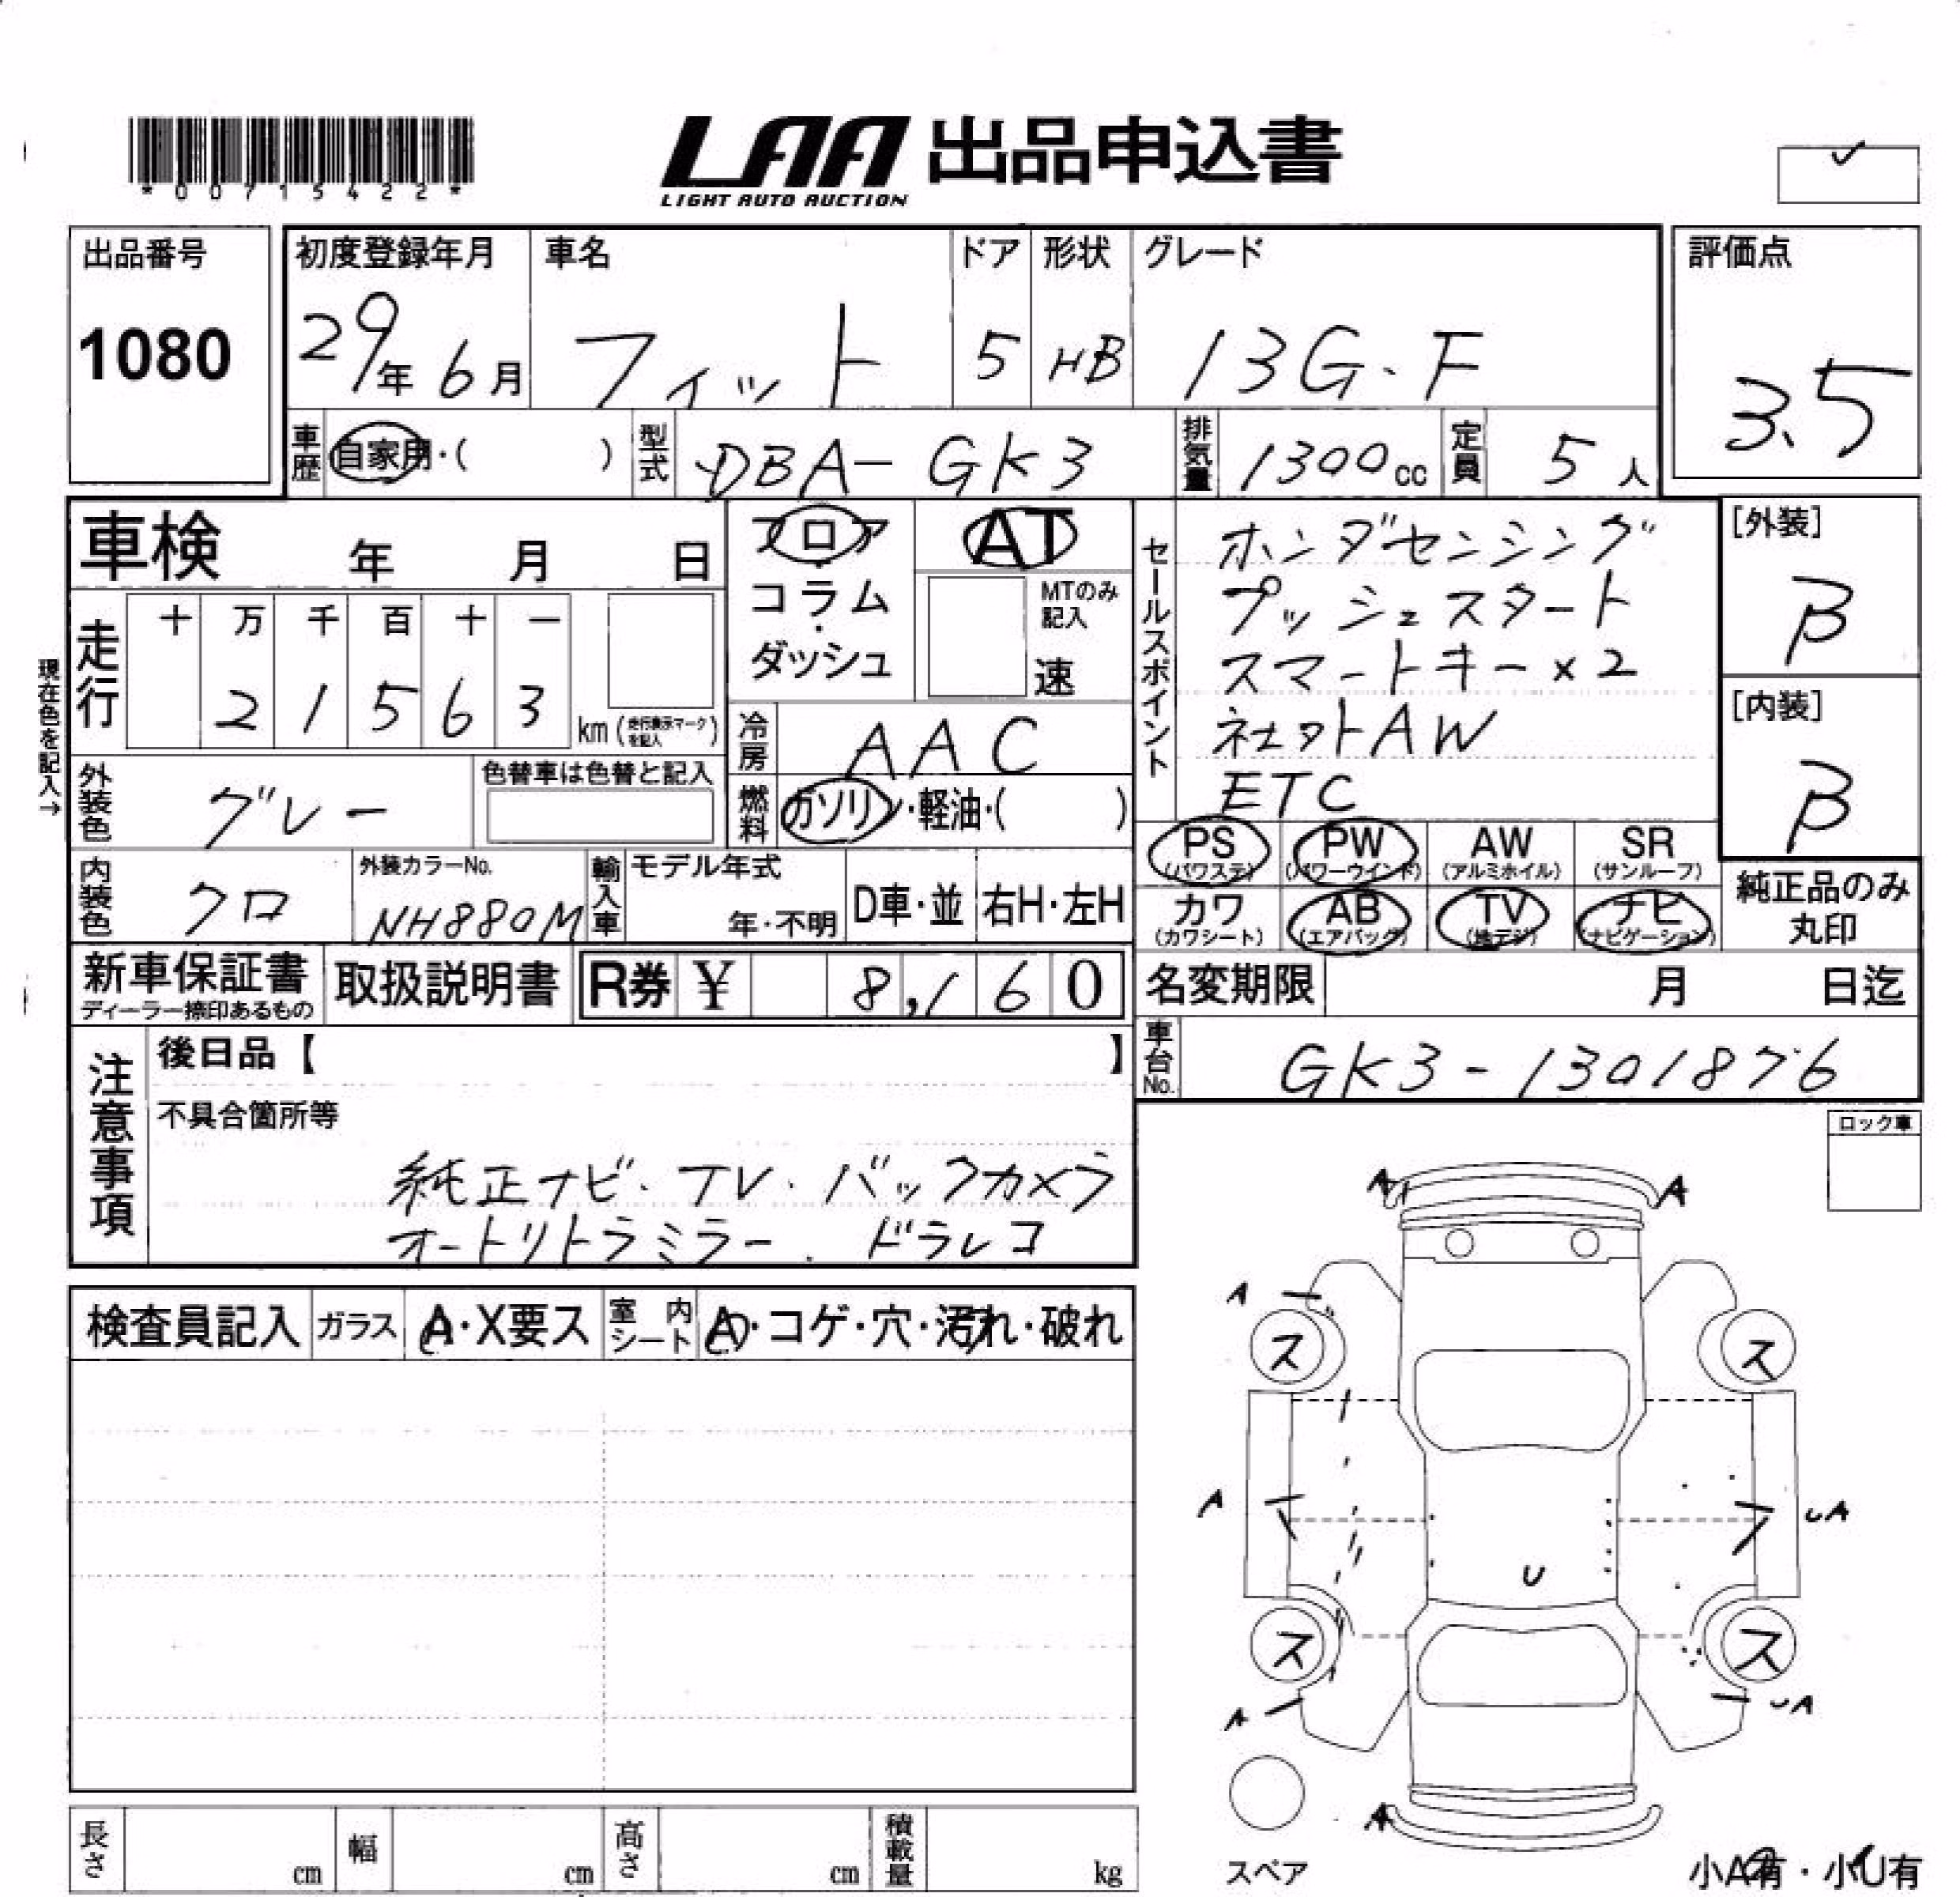 *0071542 2*
LAA 出品申込書
LIGHT AUTO AUCTION
出品番号
1080
初度登録年月
29年6月
車名
フィット
ドア
5
形状
HB
グレード
13G・F
評価点
3.5
車歴
自家用・( )
型式
DBA-GK3
排気量
1300cc
定員
5人
車検 年 月 日
フロア
コラム
・
ダッシュ
AT
MTのみ
記入
速
セールスポイント
ホンダセンシング
プッシュスタート
スマートキー×2
社外AW
ETC
[外装]
B
[内装]
B
現在色を記入→
走行
十 万 千 百 十 一
2 1 5 6 3
km (走行表示マークを記入)
冷房
AAC
外装色
グレー
色替車は色替と記入
燃料
ガソリン・軽油・( )
PS (パワステ)
PW (パワーウインド)
AW (アルミホイル)
SR (サンルーフ)
内装色
クロ
外装カラーNo.
NH880M
輸入車
モデル年式
年・不明
D車・並
右H・左H
カワ (カワシート)
AB (エアバッグ)
TV (地デジ)
ナビ (ナビゲーション)
純正品のみ
丸印
新車保証書
ディーラー捺印あるもの
取扱説明書
R券 ¥ 8,160
名変期限 月 日迄
車台No.
GK3-1301876
注意事項
後日品【 】
不具合箇所等
純正ナビ・TV・バックカメラ
オートリトラミラー・ドラレコ
ロック車
検査員記入
ガラス
A・X要ス
室内シート
A・コゲ・穴・汚れ・破れ
A A
A
ス ス
A UA
U
ス ス
A UA
A
スペア
小A有・小U有
長さ cm
幅 cm
高さ cm
積載量 kg